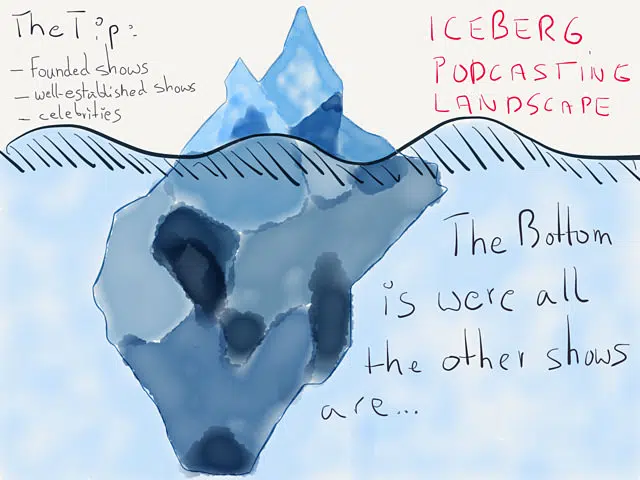 The Tip:
- Founded shows
- well-established shows
- celebrities
ICEBERG
PODCASTING
LANDSCAPE
The Bottom
is were all
the other shows
are...